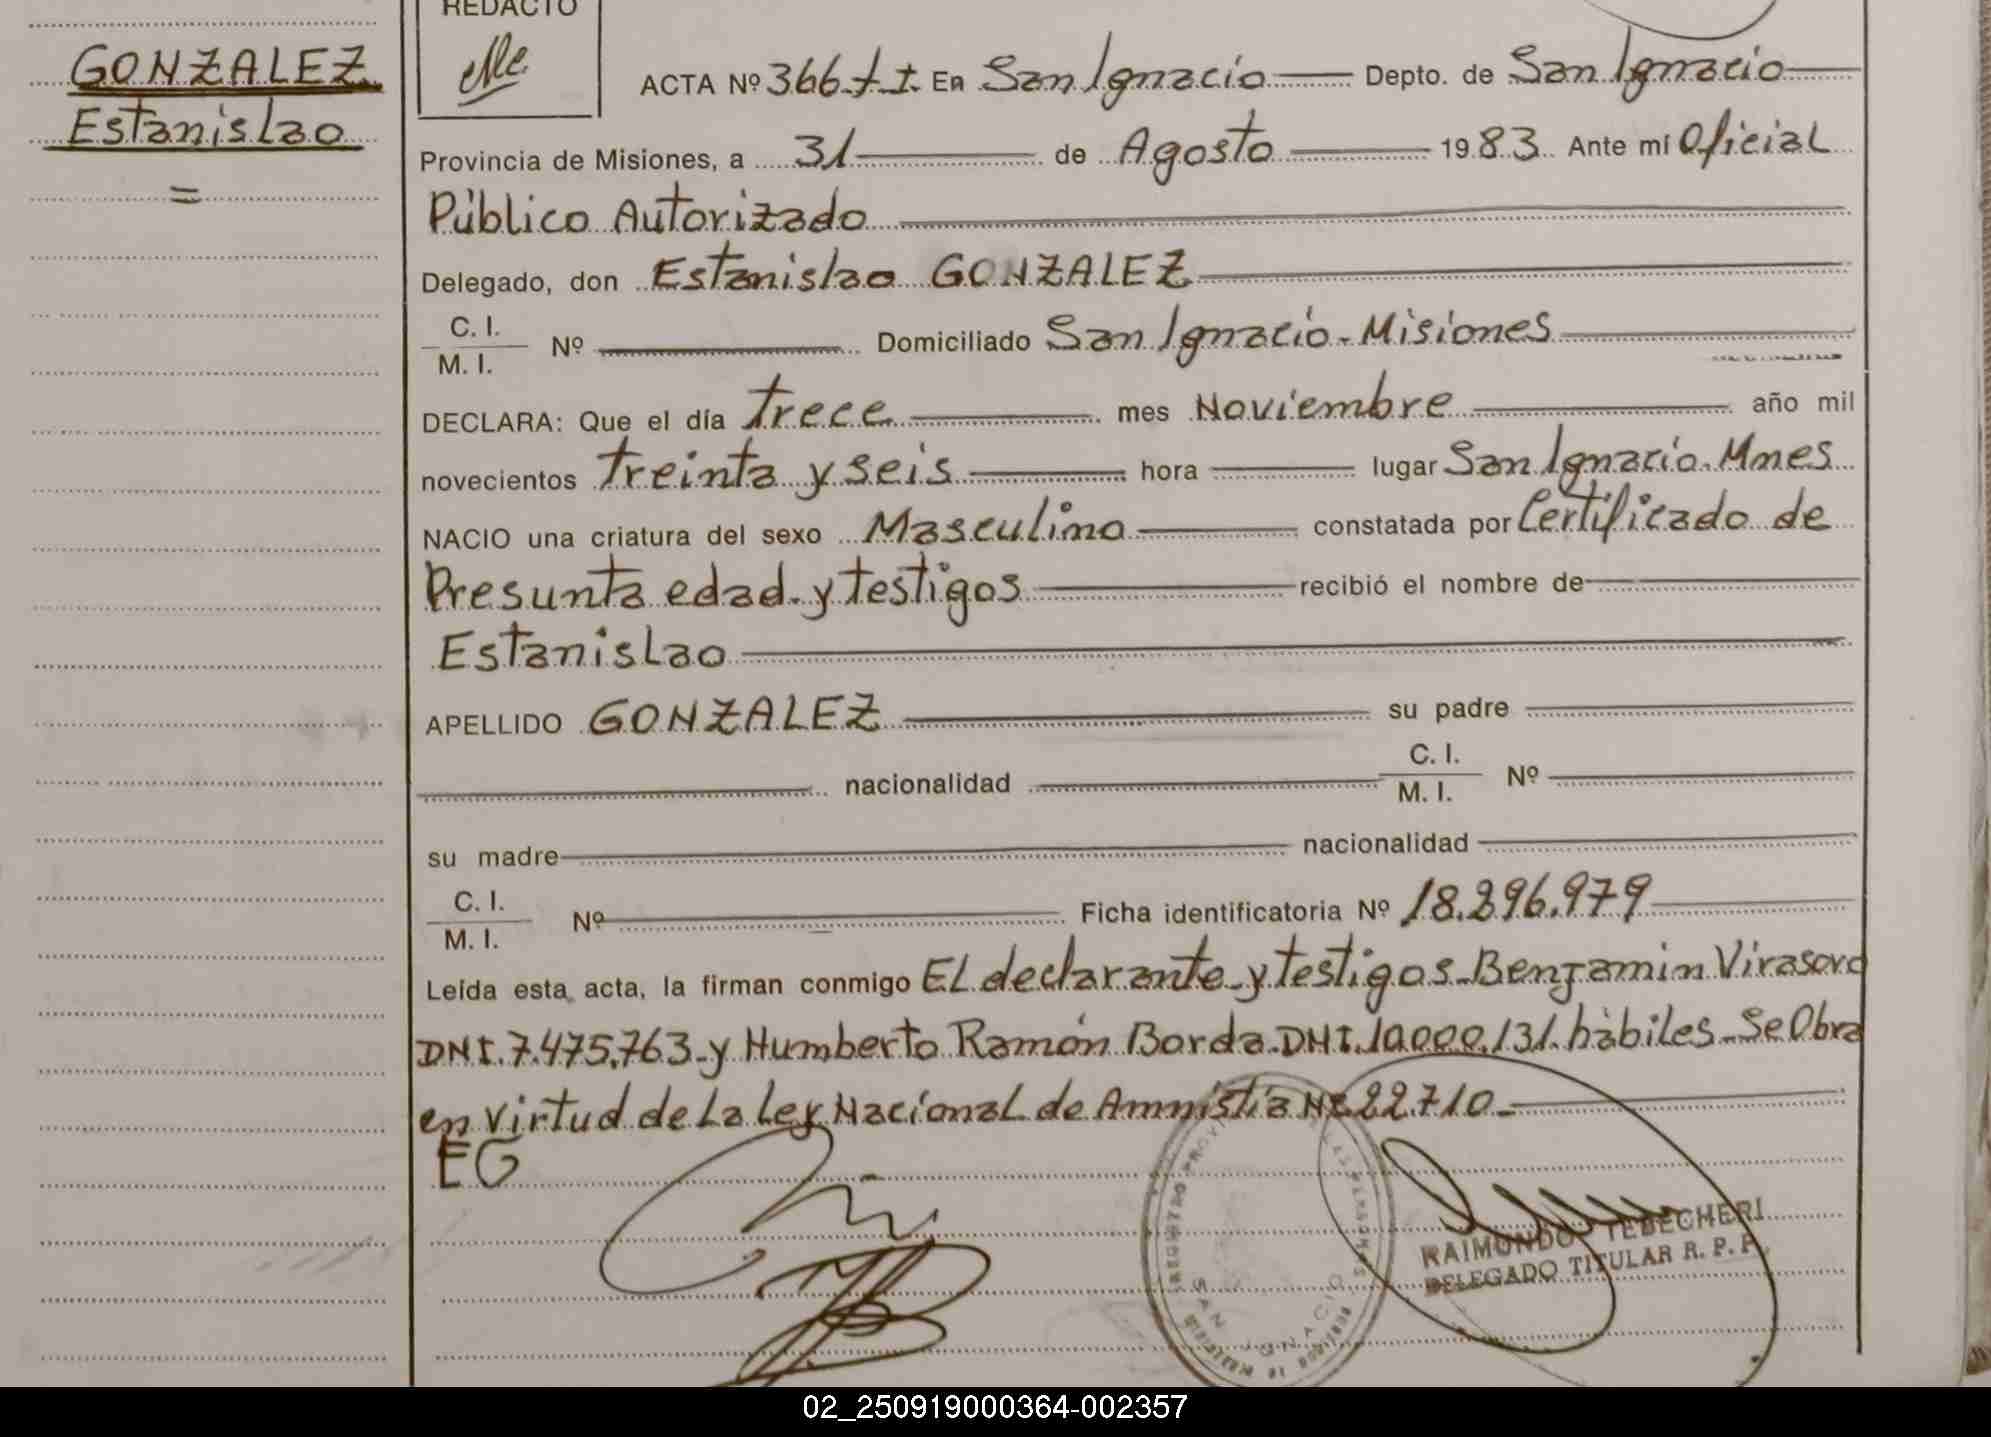 REDACTO
GONZALEZ
Estanislao
=
ACTA Nº 366 t I. En San Ignacio Depto. de San Ignacio
Provincia de Misiones, a 31 de Agosto 1983. Ante mí Oficial
Público Autorizado
Delegado, don Estanislao GONZALEZ
C. I.
M. I. Nº Domiciliado San Ignacio - Misiones
DECLARA: Que el día trece mes Noviembre año mil
novecientos treinta y seis hora lugar San Ignacio. Mnes
NACIO una criatura del sexo Masculino constatada por Certificado de
Presunta edad y testigos recibió el nombre de
Estanislao
APELLIDO GONZALEZ su padre
nacionalidad C. I.
M. I. Nº
su madre nacionalidad
C. I.
M. I. Nº Ficha identificatoria Nº 18.896.979
Leída esta acta, la firman conmigo El declarante y testigos - Benjamin Virasoro
DNI. 7.475.763 - y Humberto Ramón Borda. DNI. 10.000.131. hàbiles - Se Obra
en virtud de La Ley Nacional de Amnistía Nº 22.710 -
EG
RAIMUNDO TEBECHERI
DELEGADO TITULAR R. P. P.
SAN IGNACIO
02_250919000364-002357